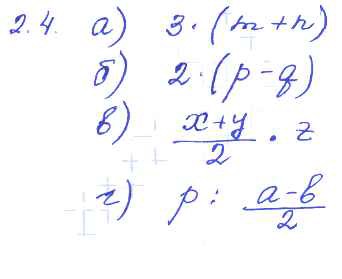 2.4. а) 3·(m+n)
б) 2·(p-q)
в) (x+y)/2 · z
г) p : (a-b)/2